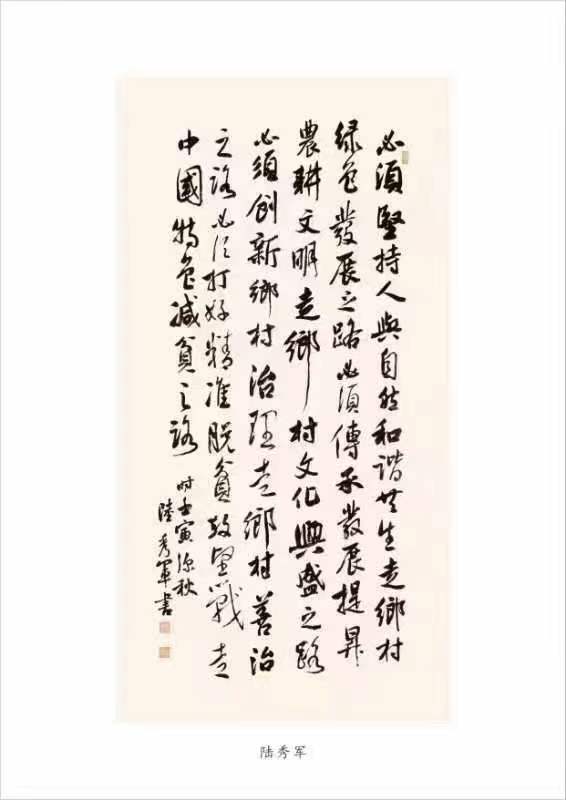 必須堅持人與自然和諧共生走鄉村
綠色發展之路必須傳承發展提昇
農耕文明走鄉村文化興盛之路
必須創新鄉村治理走鄉村善治
之路必須打好精准脫貧攻堅戰走
中國特色減貧之路
時壬寅深秋
陸秀軍書
陆秀军